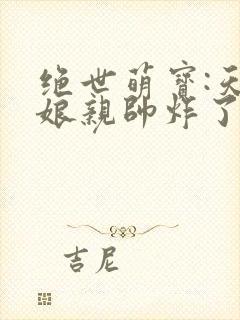 绝世萌寶:天
娘親帥炸了
吉尼